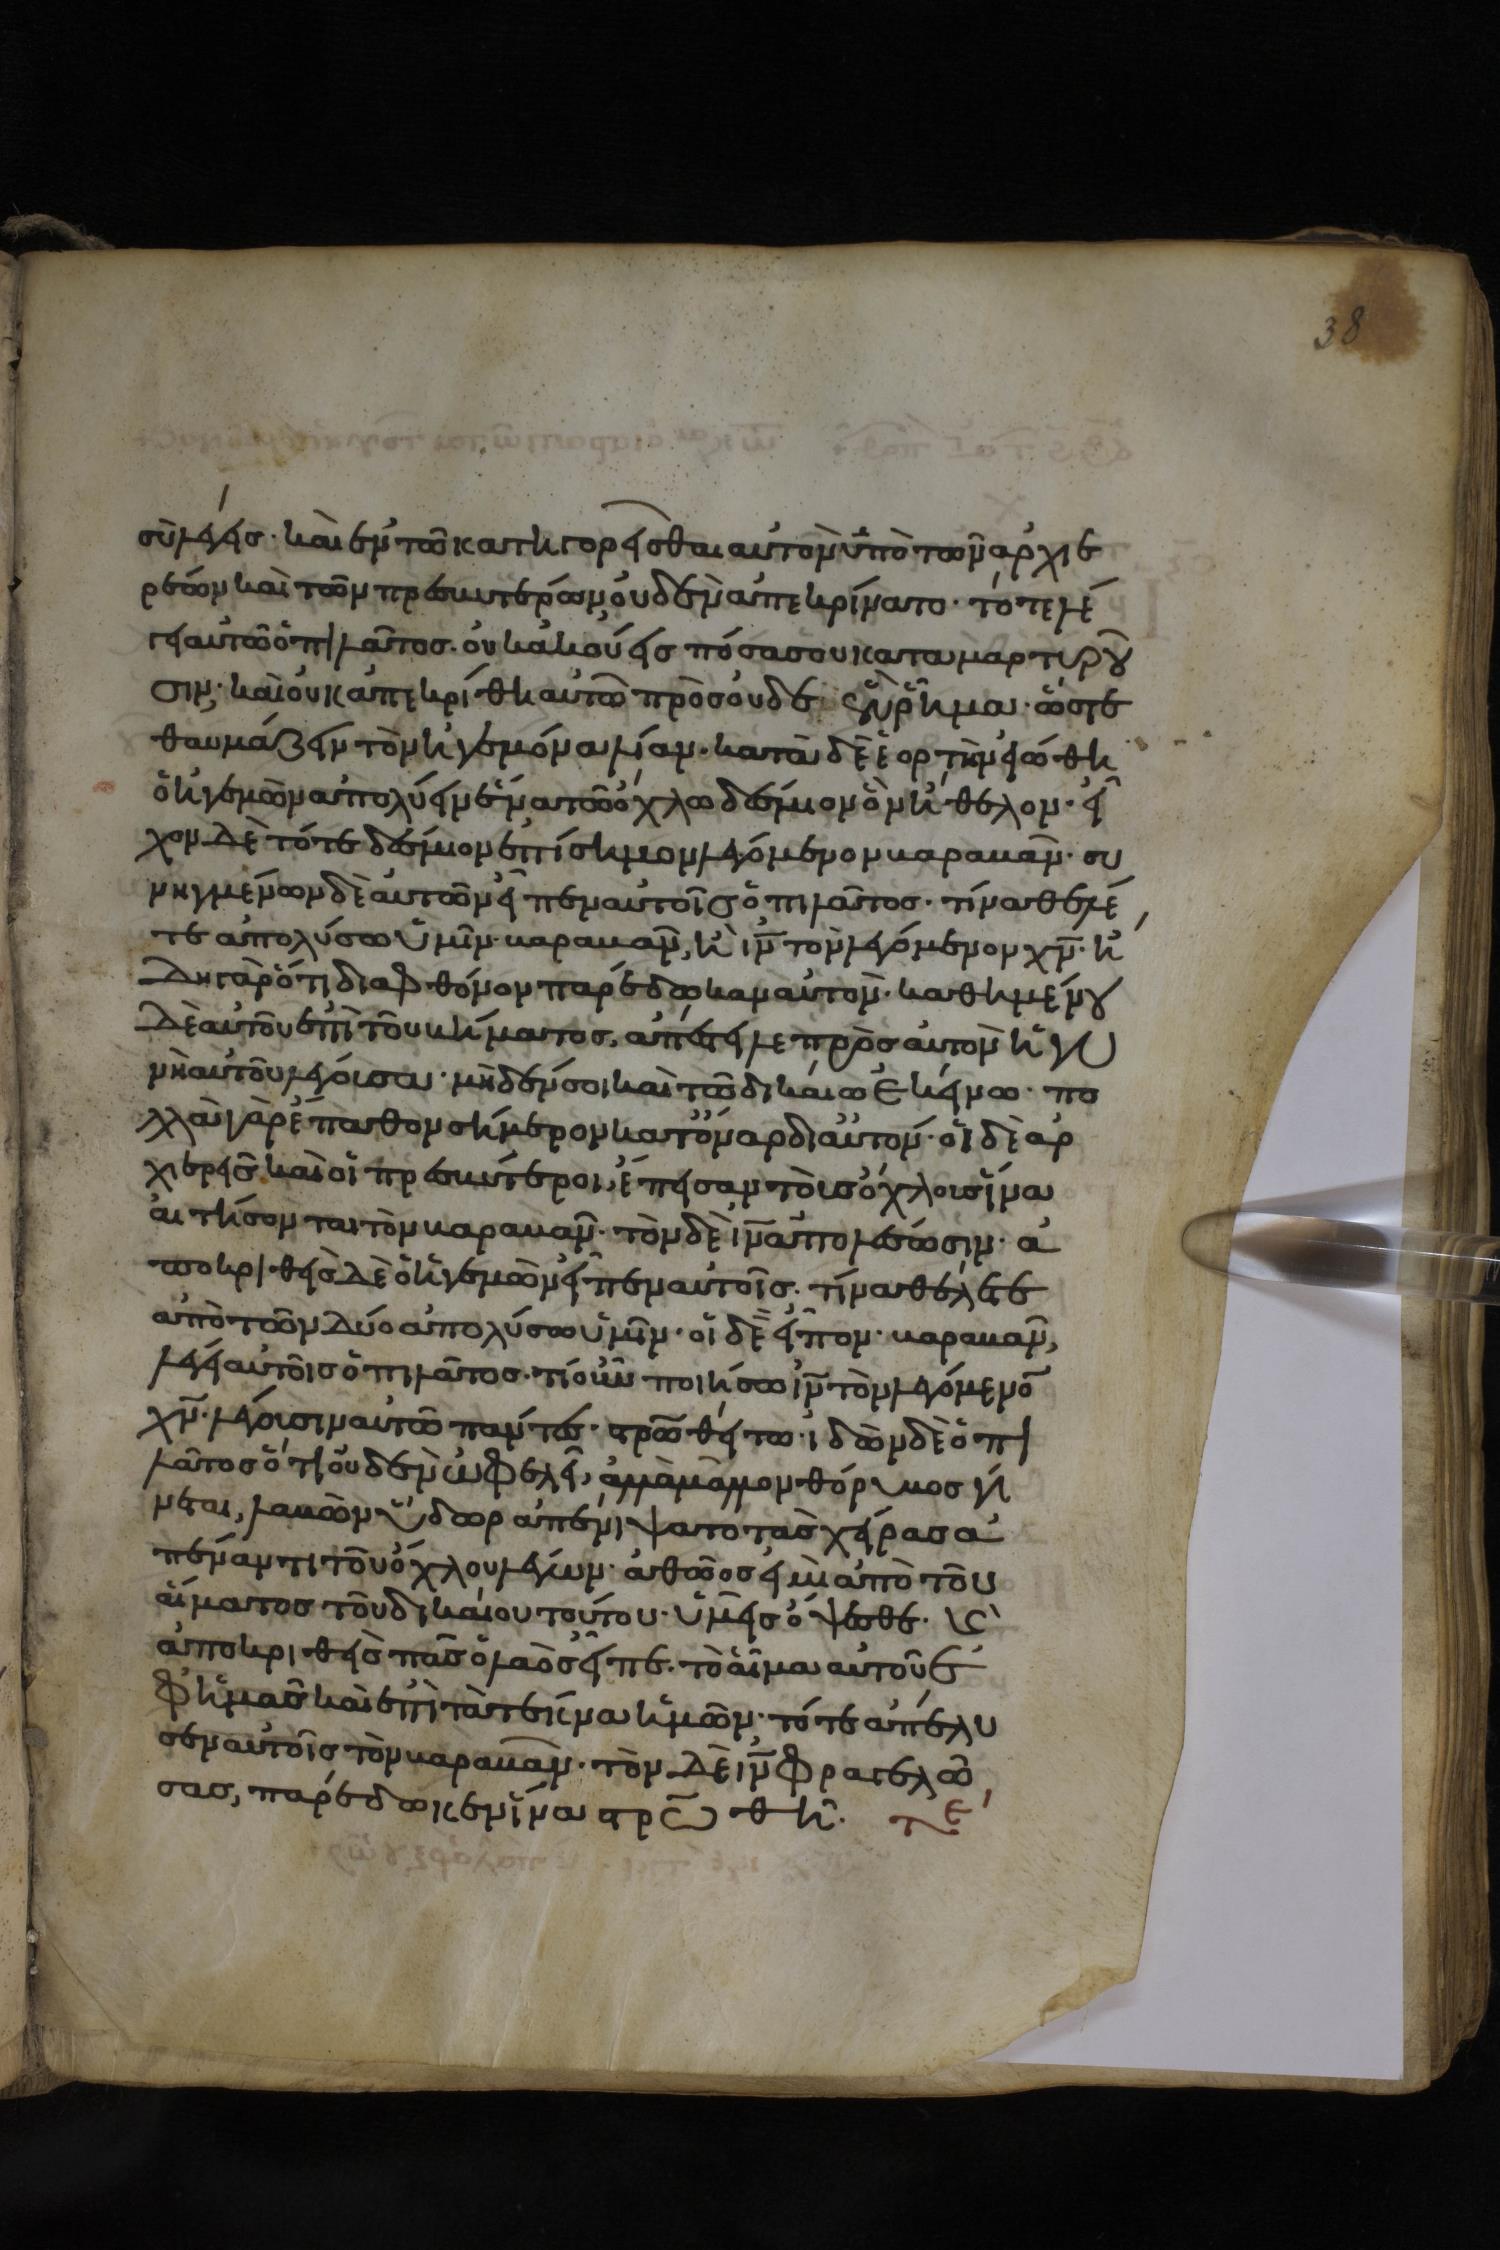 38
σὺ λέγεις· καὶ ἐν τῶ κατηγορεῖσθαι αὐτὸν ὑπὸ τῶν ἀρχιε
ρέων καὶ τῶν πρεσβυτέρων οὐδὲν ἀπεκρίνατο· τότε λέ
γει αὐτῶ ὁ πιλᾶτος· οὐκ ἀκούεις πόσα σου καταμαρτυροῦ
σιν· καὶ οὐκ ἀπεκρίθη αὐτῶ πρὸς οὐδὲ ἓν ῥῆμα· ὥστε
θαυμάζειν τὸν ἡγεμόνα λίαν· κατὰ δὲ ἑορτὴν εἰώθη
ὁ ἡγεμὼν ἀπολύειν ἕνα τῶ ὄχλω δέσμιον ὃν ἤθελον· εἶ
χον δὲ τότε δέσμιον ἐπίσημον λεγόμενον βαραββᾶν· συ
νηγμένων δὲ αὐτῶν εἶπεν αὐτοῖς ὁ πιλᾶτος· τίνα θέλε
τε ἀπολύσω ὑμῖν· βαραββᾶν, ἢ ἰν τὸν λεγόμενον χν· ἤ
δη γὰρ ὅτι διὰ φθόνον παρέδωκαν αὐτόν· καθημένου
δὲ αὐτοῦ ἐπὶ τοῦ βήματος, ἀπέστειλε πρὸς αὐτὸν ἡ γυ
νὴ αὐτοῦ λέγουσα· μηδέν σοι καὶ τῶ δικαίω ἐκείνω· πο
λλὰ γὰρ ἔπαθον σήμερον κατ' ὄναρ δι αὐτόν· οἱ δὲ ἀρ
χιερεῖς καὶ οἱ πρεσβύτεροι, ἔπεισαν τοὺς ὄχλους ἵνα
αἰτήσονται τὸν βαραββᾶν· τὸν δὲ ἰν ἀπολέσωσιν· ἀ
ποκριθεὶς δὲ ὁ ἡγεμὼν εἶπεν αὐτοῖς· τίνα θέλετε
ἀπὸ τῶν δύο ἀπολύσω ὑμῖν· οἱ δὲ εἶπον· βαραββᾶν,
λέγει αὐτοῖς ὁ πιλᾶτος· τί οὖν ποιήσω ἰν τὸν λεγόμενον
χν· λέγουσιν αὐτῶ πάντες· στρωθήτω· ἰδὼν δὲ ὁ πι
λᾶτος ὅτι οὐδὲν ὠφελεῖ, ἀλλὰ μᾶλλον θόρυβος γί
νεται, λαβὼν ὕδωρ ἀπενίψατο τὰς χεῖρας ἀ
πέναντι τοῦ ὄχλου λέγων· ἀθῶος εἰμι ἀπὸ τοῦ
αἵματος τοῦ δικαίου τούτου· ὑμεῖς ὄψεσθε· κ
ἀποκριθεὶς πᾶς ὁ λαὸς εἶπε· τὸ αἷμα αὐτοῦ ἐ
φ ἡμᾶς καὶ ἐπὶ τὰ τέκνα ἡμῶν· τότε ἀπέλυ
σεν αὐτοῖς τὸν βαραββᾶν· τὸν δὲ ἰν φραγελώ
σας, παρέδωκεν ἵνα στρωθῆ·